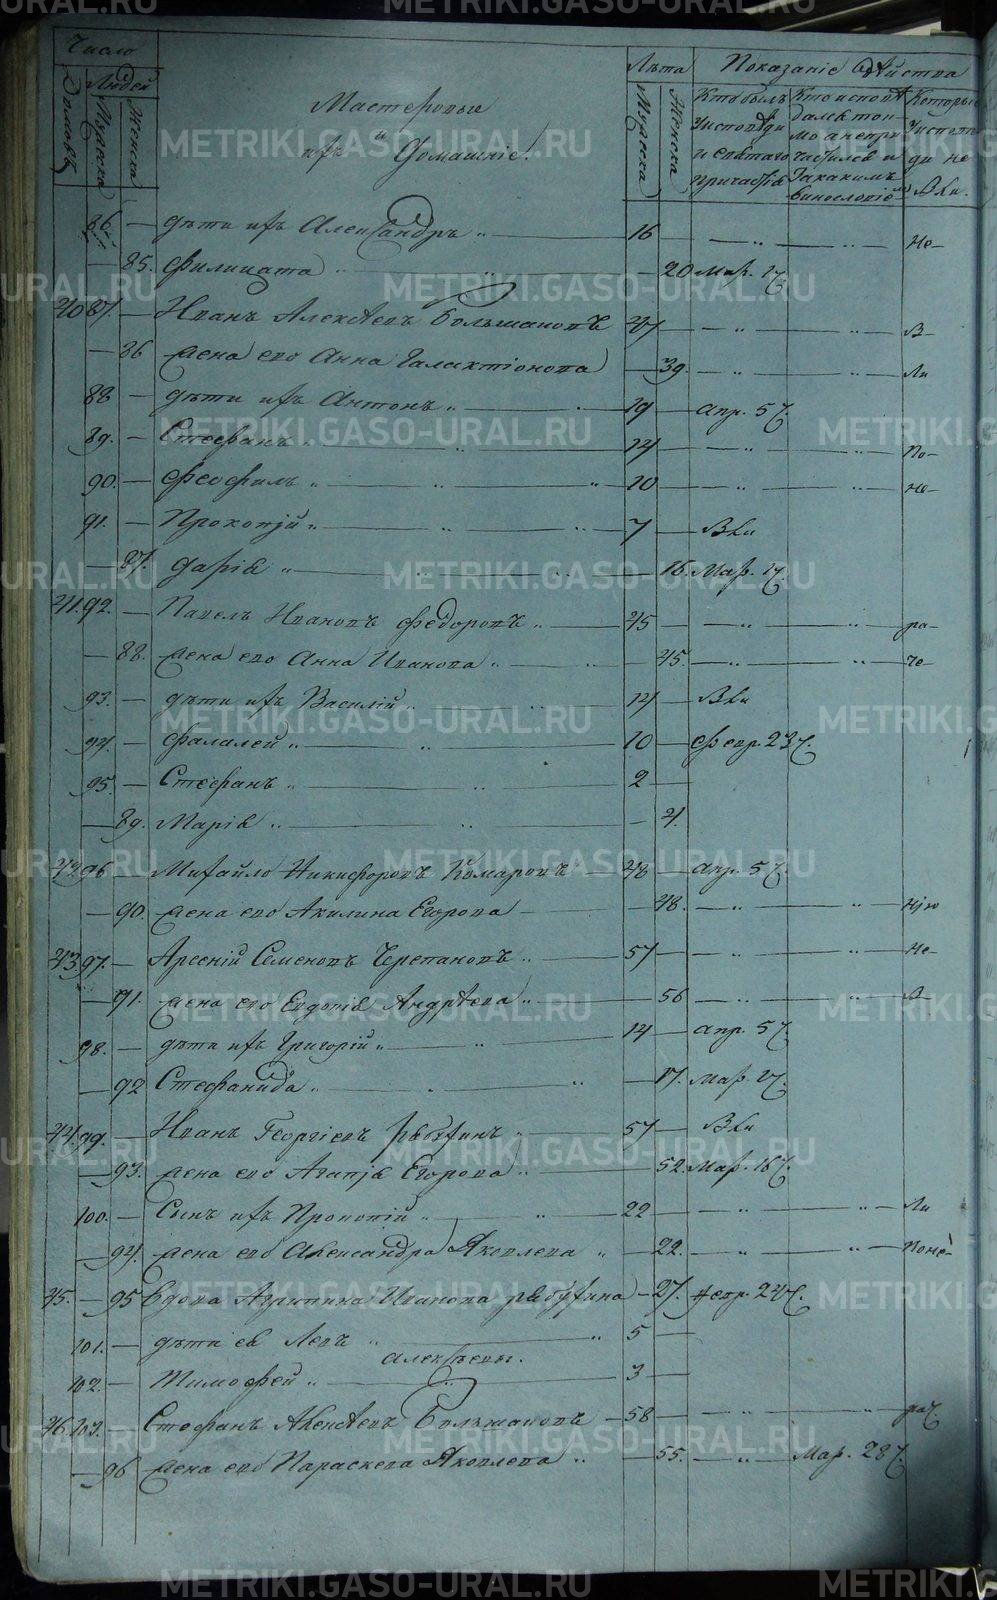 Число
Людей
Домовъ
Мужска
Женска
Мастеровые
и ихъ Домашніе.
Лѣта
Мужска
Женска
Показаніе дѣйства
Кто былъ
у исповѣди
и святаго
причастія
Кто исповѣ
дался токи
мо а не при
частился и
за какимъ
винословіемъ
Которые
у исповѣ
ди не
были.
86. — дѣти ихъ Александръ „ — 16 — — „ — „ — не-
— 85. Филицата „ — „ — 20 Мар. 17.
40 87. — Иванъ Алексѣевъ Большаковъ 47 — — „ — В-
— 86 жена его Анна Галактіонова — 39. — „ — „ — ли
88 — дѣти ихъ Антонъ „ — „ — 19 — апр. 5 ч.
89. — Стефанъ „ — „ — 14 — — „ — „ — по-
90. — Феофилъ „ — „ — „ — 10 — — „ — „ — не-
91. — Прокопій „ — „ — „ — 7 — Были
— 87. Дарія „ — „ — 16. Мар. 17.
41. 92. — Павелъ Ивановъ Федоровъ „ — 45 — — „ — „ — ра-
— 88. жена его Анна Иванова „ — „ — 45. — „ — „ — че-
93. — дѣти ихъ Василій „ — „ — 14 — Были
94. — Фалалей „ — „ — 10 — Февр. 23 ч.
95. — Стефанъ „ — „ — 2 —
— 89. Марія „ — „ — 4.
42 96 — Михайло Никифоровъ Комаровъ — 48 — апр. 5 ч.
— 90. жена его Акилина Егорова — 48. — „ — „ — нію
43 97. — Арсеній Семеновъ Черепановъ „ — 57 — — „ — „ — Не-
— 91. жена его Евдокія Андрѣева „ — 56 — „ — „ — Л-
98. — дѣти ихъ Григорій „ — „ — 14 — апр. 5 ч.
— 92 Стефанида „ — „ — „ — 17. Мар. 17.
44. 99. — Иванъ Георгіевъ Рябухинъ „ — 57 — Были
— 93. жена его Агапія Егорова „ — 52. Мар. 16 ч.
100. — Сынъ ихъ Прокопій „ — „ — 22 — — „ — „ — Ли
— 94. жена его Александра Яковлева „ — 22. — „ — „ — Поне-
45. — 95 Вдова Агрипина Иванова Рябухина — 27. Февр. 24 ч.
101. — дѣти ея Левъ „ — „ — 5 —
Алексѣевы.
102. — Тимофей „ — „ — 3 —
46. 103. — Стефанъ Алексѣевъ Большаковъ — 58 — — „ — „ — рач.
— 96 жена его Параскева Яковлева „ — 55. — „ — Мар. 28 ч.
METRIKI.GASO-URAL.RU